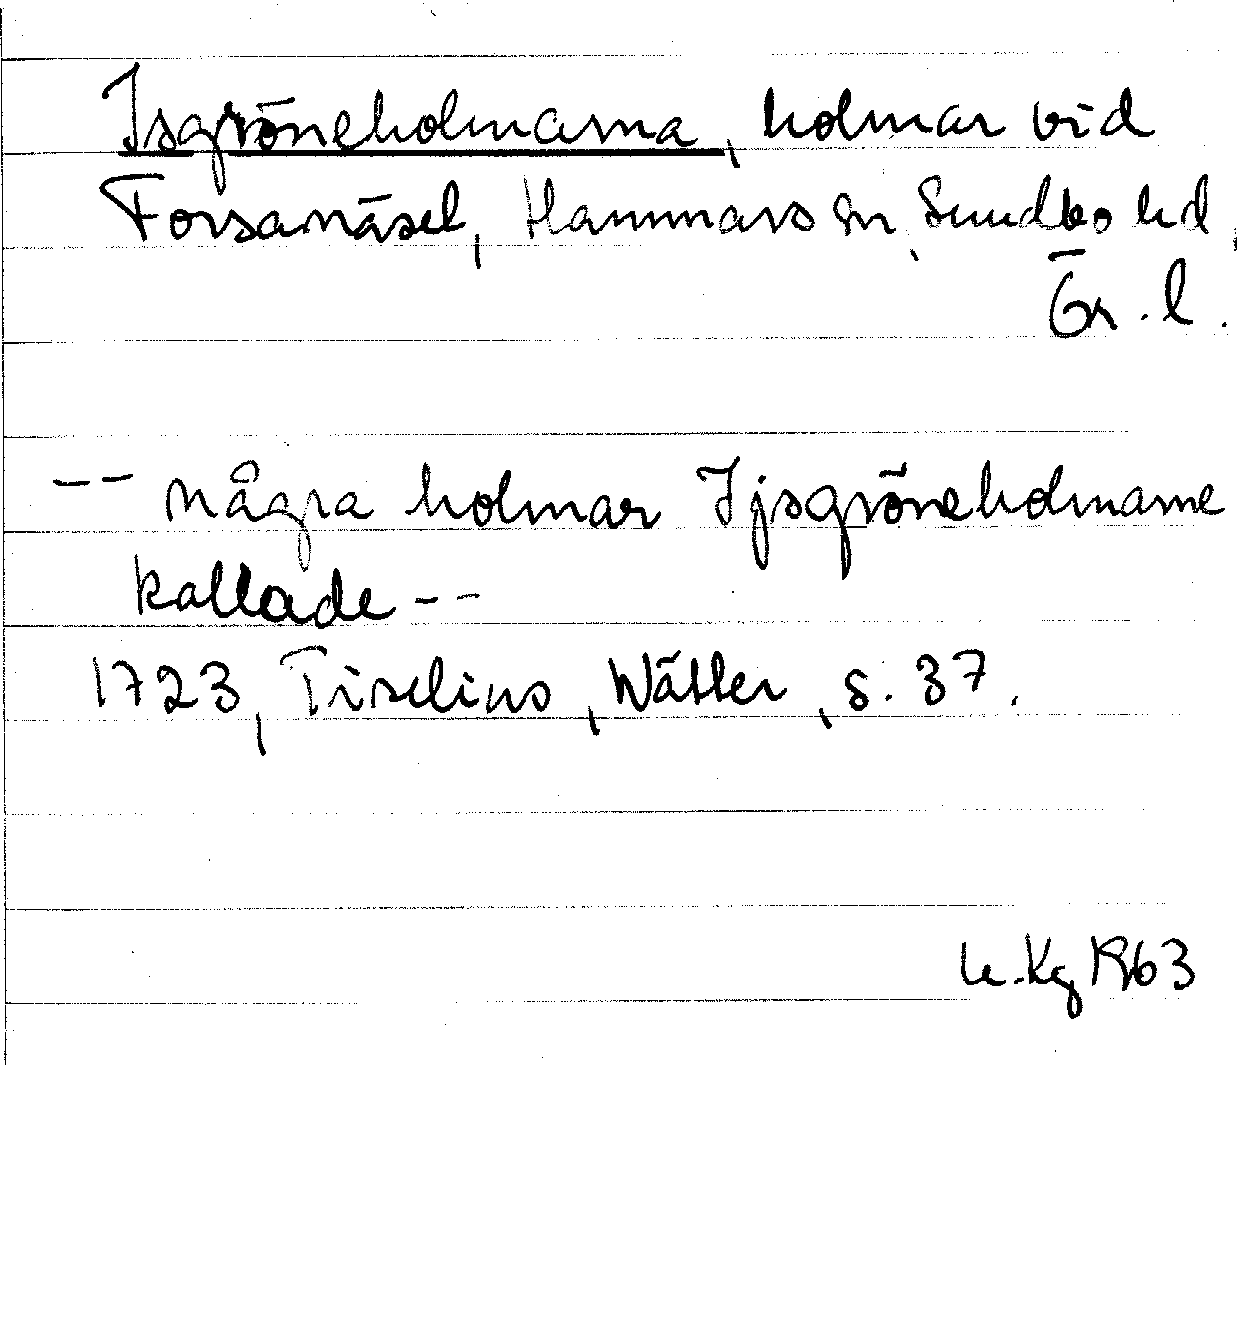 Isgröneholmarna, holmar vid
Forsanäset, Hammars sn, Sundbo hd,
Ör. l.
-- några holmar Ijsgröneholmarne
kallade --
1723, Tiselius, Wätter, s. 37.
Kg 1963